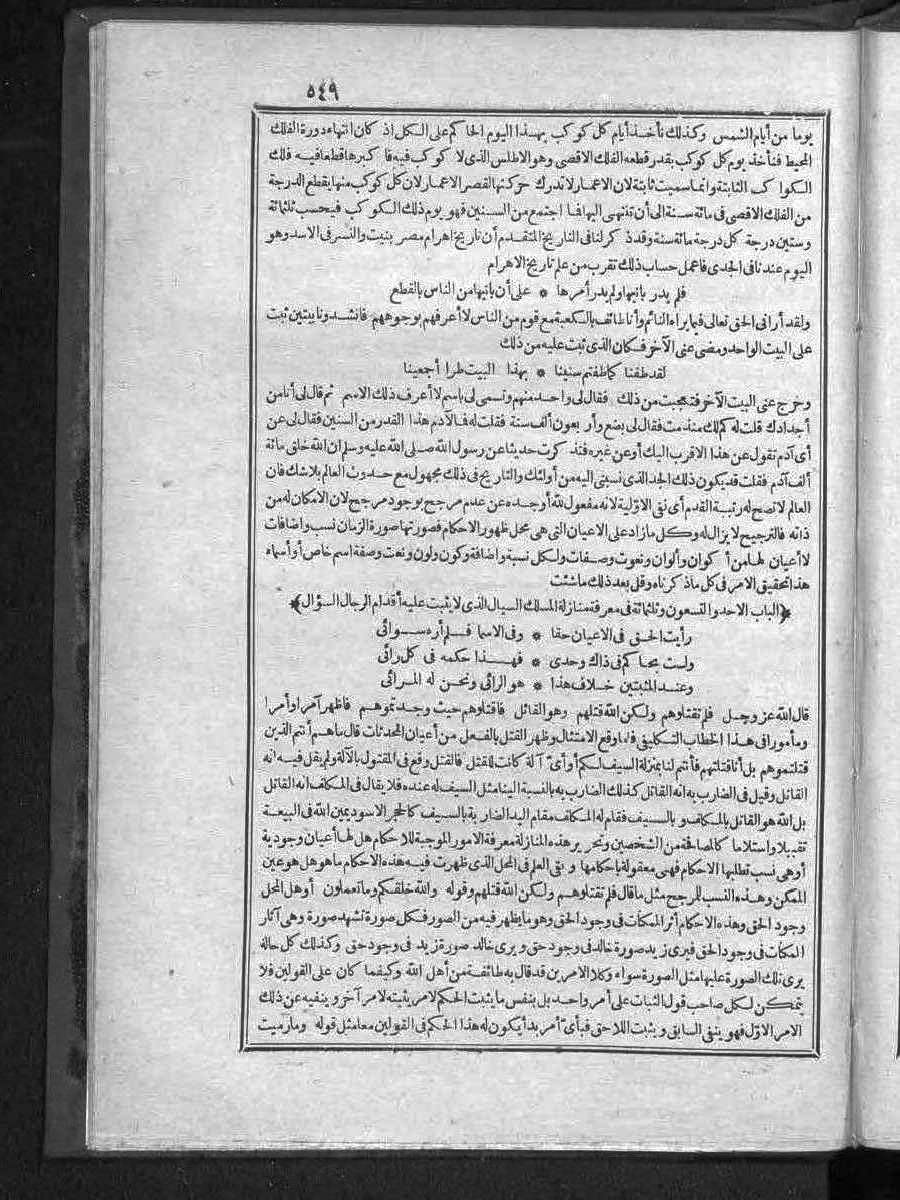 ٥٤٩
يوما من أيام الشمس وكذلك تأخذ أيام كل كوكب بهذا اليوم الحاكم على الكل اذ كان انتهاء دورة الفلك
المحيط فنأخذ يوم كل كوكب بقدر قطعه الفلك الاقصى وهو الاطلس الذى لا كوكب فيه فا كبرها قطعا فيه فلك
الكواكب الثابتة وانما سميت ثابتة لان الاعمار لا تدرك حركتها لقصر الاعمار لان كل كوكب منها يقطع الدرجة
من الفلك الاقصى فى مائة سنة الى أن تنتهى اليها فا اجتمع من السنين فهو يوم ذلك الكوكب فيحسب ثلثمائة
وستين درجة كل درجة مائة سنة وقد ذكر لنا فى التاريخ المتقدم أن تاريخ اهرام مصر بنيت والنسر فى الاسد وهو
اليوم عندنا فى الجدى فاعمل حساب ذلك تقرب من علم تاريخ الاهرام
فلم يدر بانيها ولم يدر أمرها * على أن بانيها من الناس بالقطع
ولقد أرانى الحق تعالى فيما يراه النائم وأنا طائف بالكعبة مع قوم من الناس لا أعرفهم بوجوههم فانشدونا بيتين ثبت
على البيت الواحد ومضى عنى الآخر فكان الذى ثبت عليه من ذلك
لقد طفنا كما طفتم سنينا * بهذا البيت طرا أجعينا
وخرج عنى البيت الآخر فتعجبت من ذلك فقال لى واحد منهم وتسمى لى باسم لا أعرف ذلك الاسم ثم قال لى أنا من
أجدادك قلت له كم لك منذ مت فقال لى بضع وأربعون ألف سنة فقلت له فما لآدم هذا القدر من السنين فقال لى عن
أى آدم تقول عن هذا الاقرب اليك أو عن غيره فتذكرت حديثا عن رسول الله صلى الله عليه وسلم ان الله خلق مائة
ألف آدم فقلت قد يكون ذلك الجد الذى نسبنى اليه من أولئك والتاريخ فى ذلك مجهول مع حدوث العالم بلا شك فان
العالم لا تصح له رتبة القدم أى نفى الاولية لانه مفعول لله أوجده عن عدم مرجح بوجود مرجح لان الامكان له من
ذاته فالترجيح لا يزال له وكل ما زاد على الاعيان التى هى محل ظهور الاحكام فصورتها صورة الزمان نسب واضافات
لا أعيان لها من أكوان وألوان ونعوت وصفات ولكل نسبة واضافة وكون ولون ونعت وصفة اسم خاص أو أسماء
هذا تحقيق الامر فى كل ما ذكرناه وقل بعد ذلك ما شئت
﴿الباب الاحد والتسعون وثلثمائة فى معرفة منازلة المسلك السيال الذى لا يثبت عليه أقدام الرجال السؤال﴾
رأيت الحق فى الاعيان حقا * وفى الاسما فلم أره سوائى
ولست بحاكم فى ذاك وحدى * فهذا حكمه فى كل رائى
وعند المثبتين خلاف هذا * هو الرائى ونحن له المرائى
قال الله عز وجل فلم تقتلوهم ولكن الله قتلهم وهو القائل فاقتلوهم حيث وجدتموهم فاظهر آمرا وأمرا
ومأمورا فى هذا الخطاب التكليفى فلما وقع الامتثال وظهر القتل بالفعل من أعيان المحدثات قال ما هم أنتم الذين
قتلتموهم بل أنا قتلتهم فأنتم لنا بمنزلة السيف لكم أو أى آلة كانت للقتل فالقتل وقع فى المقتول بالآلة ولم يقل فيه انه
القاتل وقيل فى الضارب به انه القاتل كذلك الضارب به بالنسبة الينا مثل السيف له عنده فلا يقال فى المكلف انه القاتل
بل الله هو القاتل بالمكلف وبالسيف فقام له المكلف مقام اليد الضاربة بالسيف كالحجر الاسود يمين الله فى البيعة
تقبيلا واستلاما كالمصافحة من الشخصين وتحرير هذه المنازلة معرفة الامور الموجبة للاحكام هل لها أعيان وجودية
أو هى نسب تطلبها الاحكام فهى معقولة باحكامها وبقى العلم فى المحل الذى ظهرت فيه هذه الاحكام ما هو هل هو عين
الممكن وهذه النسب للمرجح مثل ما قال فلم تقتلوهم ولكن الله قتلهم وقوله والله خلقكم وما تعملون أو هل المحل
وجود الحق وهذه الاحكام أثر الممكنات فى وجود الحق وهو ما يظهر فيه من الصور فكل صورة تشهد صورة وهى آثار
الممكنات فى وجود الحق فيرى زيد صورة خالد فى وجود حق ويرى خالد صورة زيد فى وجود حق وكذلك كل حالة
يرى تلك الصورة عليها مثل الصورة سواء وكلا الامرين قد قال به طائفة من أهل الله وكيفما كان على القولين فلا
يتمكن لكل صاحب قول الثبات على أمر واحد بل بنفس ما يثبت الحكم لامر يثبته لامر آخر وينفيه عن ذلك
الامر الاول فهو ينفى السابق ويثبت اللاحق فبأى أمر بدأ يكون له هذا الحكم فى القولين معا مثل قوله وما رميت